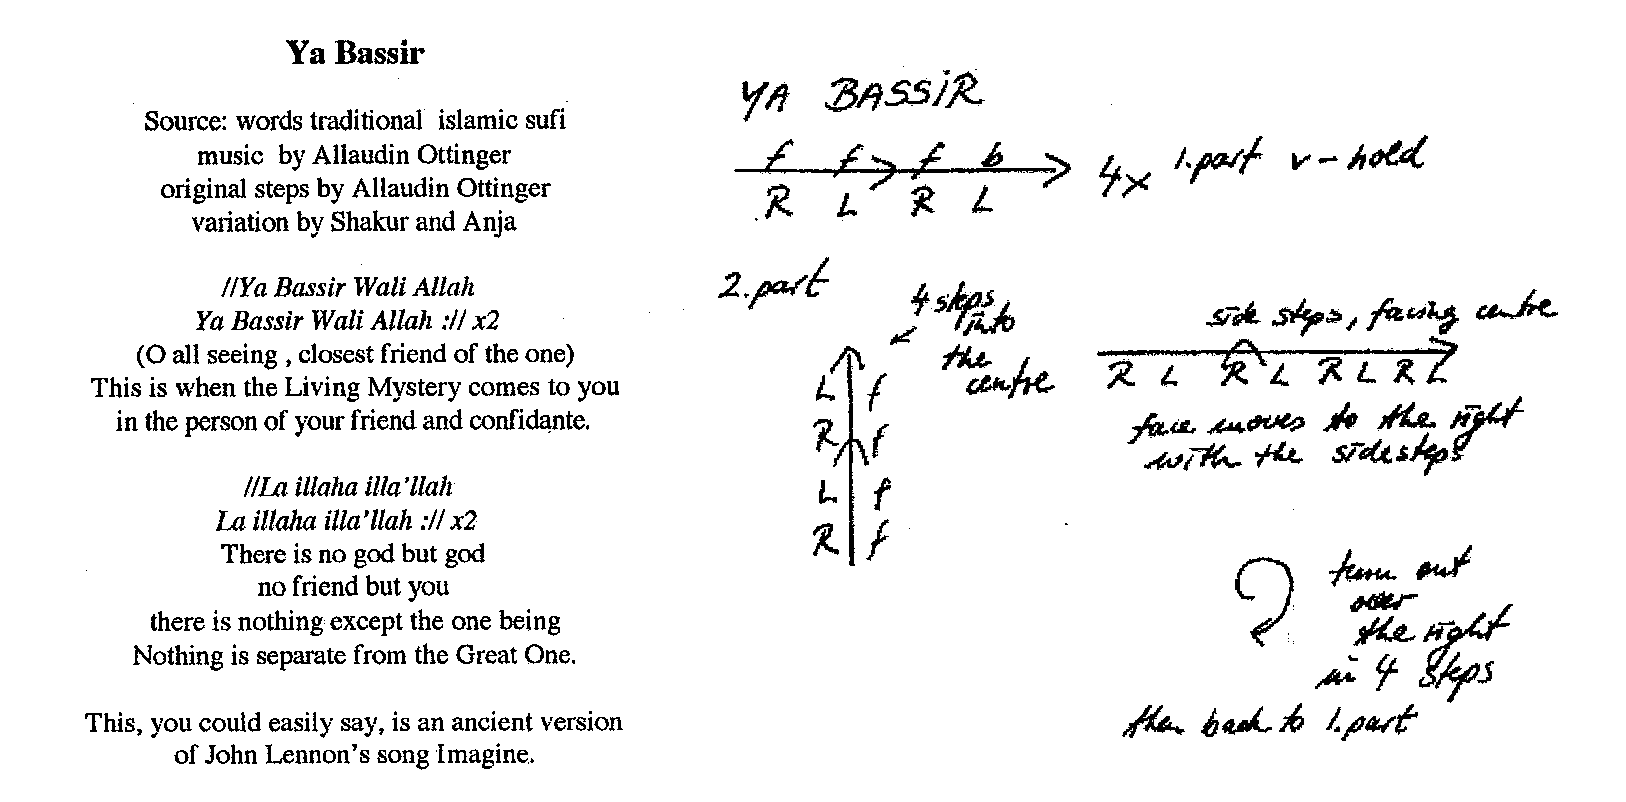 Ya Bassir
Source: words traditional islamic sufi
music by Allaudin Ottinger
original steps by Allaudin Ottinger
variation by Shakur and Anja
//Ya Bassir Wali Allah
Ya Bassir Wali Allah :// x2
(O all seeing , closest friend of the one)
This is when the Living Mystery comes to you
in the person of your friend and confidante.
//La illaha illa'llah
La illaha illa'llah :// x2
There is no god but god
no friend but you
there is nothing except the one being
Nothing is separate from the Great One.
This, you could easily say, is an ancient version
of John Lennon's song Imagine.
YA BASSIR
f f f b
R L R L
4x 1.part v-hold
2.part
4 steps
into
the
centre
L f
R f
L f
R f
side steps, facing centre
R L R L R L R L
face moves to the right
with the sidesteps
turn out
over
the right
in 4 steps
then back to 1.part